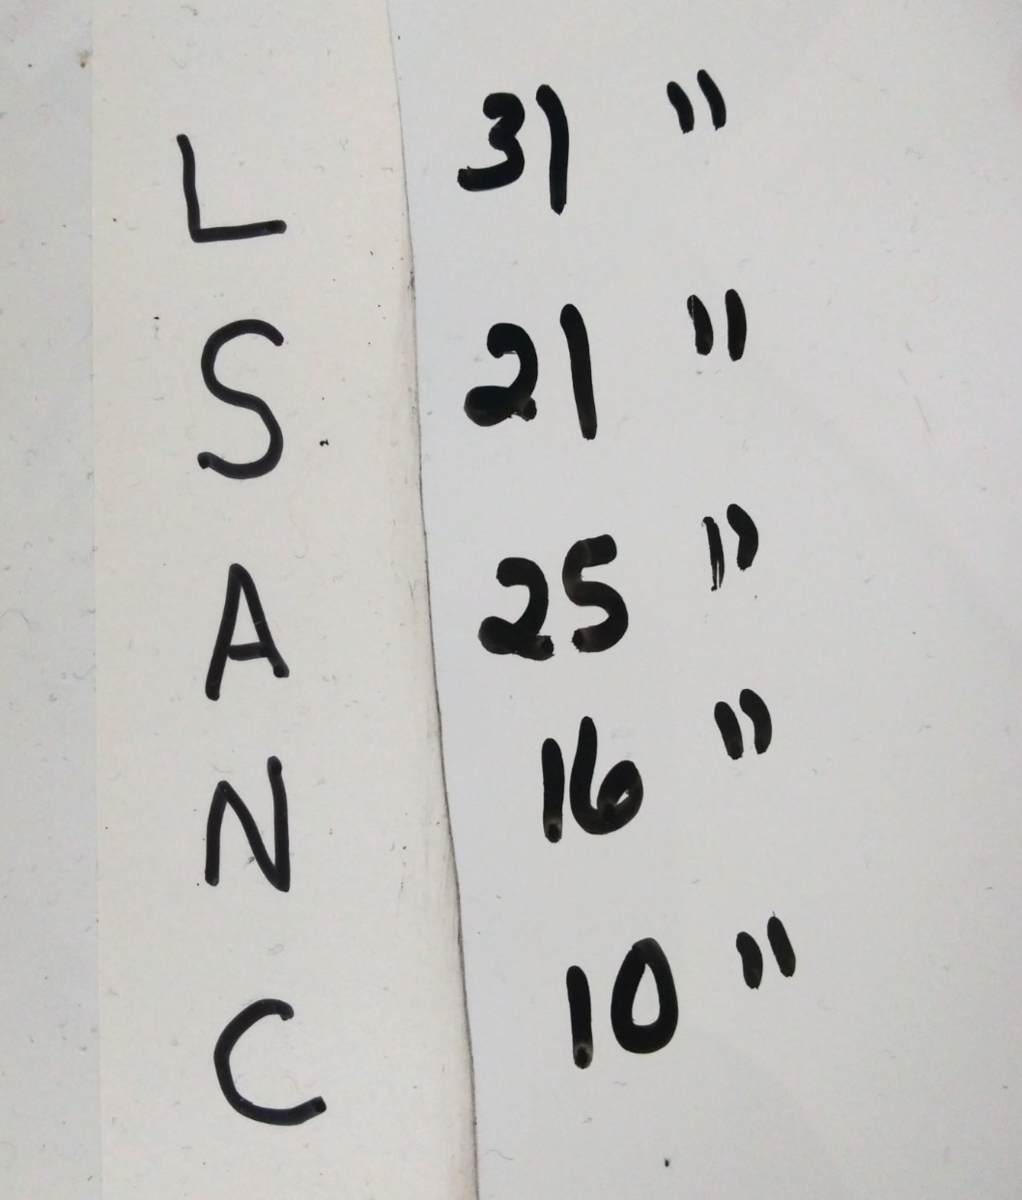 L 31 "
S 21 "
A 25 "
N 16 "
C 10 "